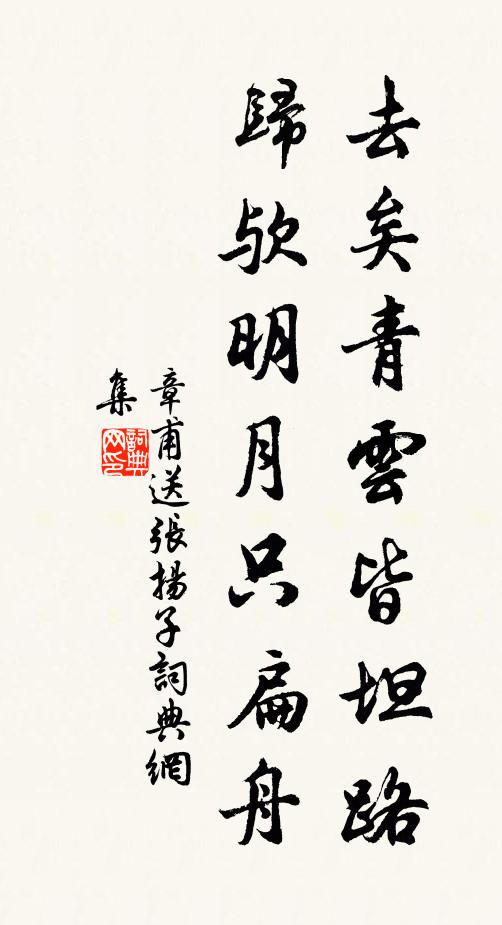 去矣青雲皆坦路
歸歟明月只扁舟
章甫送張揚子詞典網
集
詞典
网印